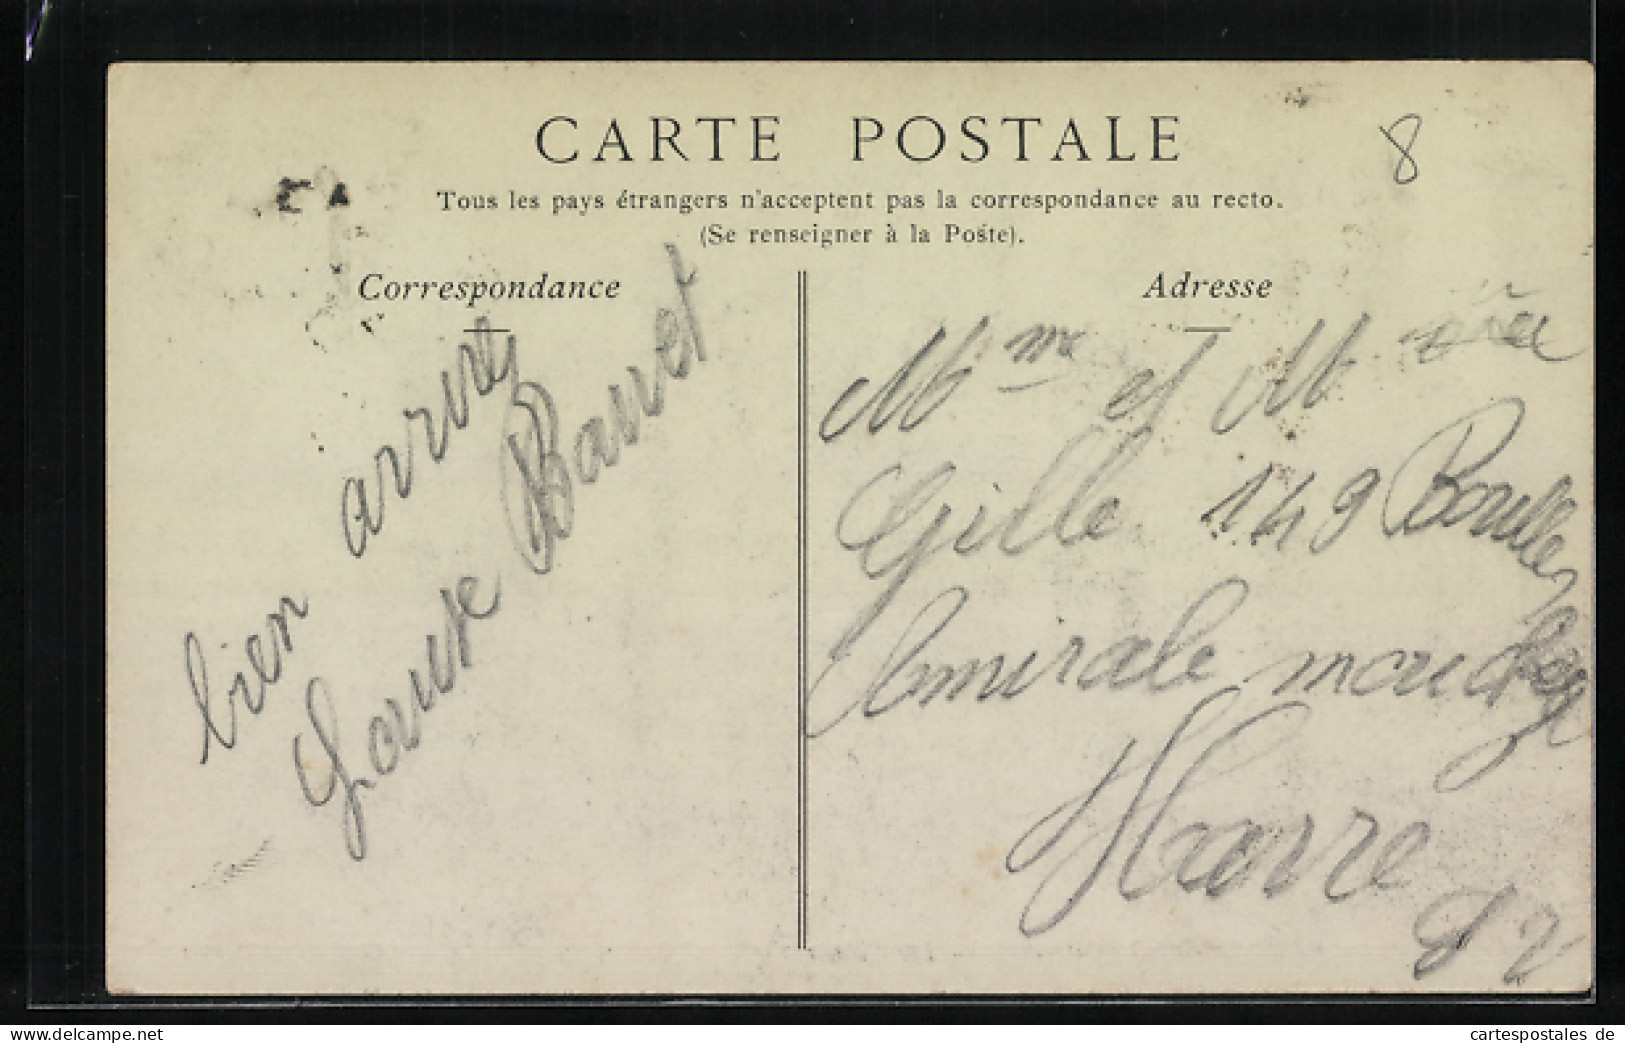 CARTE POSTALE
8
Tous les pays étrangers n'acceptent pas la correspondance au recto.
(Se renseigner à la Poste).
Correspondance
Adresse
bien arrivé
Louise Banvet
Mme et M
Gille 149 Boulle
Amirale mouchez
Havre
delcampe.net
cartespostales de